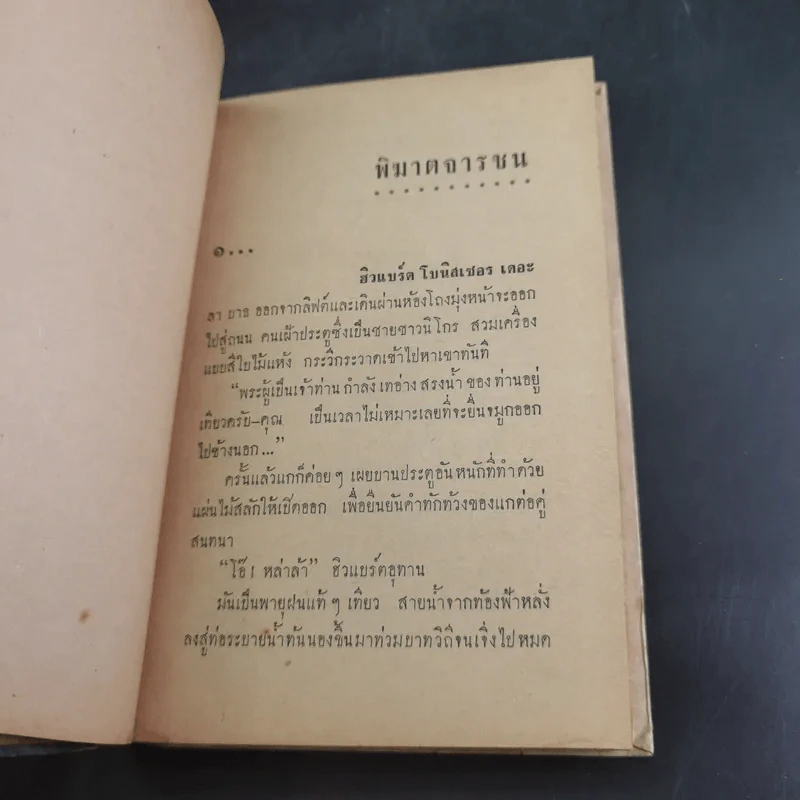 พิฆาตจารชน
๑...
ฮิวแบร์ต โบนิสเซอร เดอะ
ลา บาธ ออกจากลิฟต์และเดินผ่านห้องโถงมุ่งหน้าจะออก
ไปสู่ถนน คนเฝ้าประตูซึ่งเป็นชายชาวนิโกร สวมเครื่อง
แบบสีใบไม้แห้ง กระวีกระวาดเข้าไปหาเขาทันที
“พระผู้เป็นเจ้าท่าน กำลัง เทอ่าง สรงน้ำ ของ ท่านอยู่
เทียวครับ-คุณ เป็นเวลาไม่เหมาะเลยที่จะยื่นจมูกออก
ไปข้างนอก...”
ครั้นแล้วแกก็ค่อย ๆ เผยบานประตูอันหนักที่ทำด้วย
แผ่นไม้สลักให้เปิดออก เพื่อยืนยันคำทักท้วงของแกต่อคู่
สนทนา
“โอ๊! หล่าล้า” ฮิวแบร์ตอุทาน
มันเป็นพายุฝนแท้ ๆ เทียว สายน้ำจากท้องฟ้าหลั่ง
ลงสู่ท่อระบายน้ำทันนองขึ้นมาท่วมบาทวิถีจนเจิ่งไปหมด